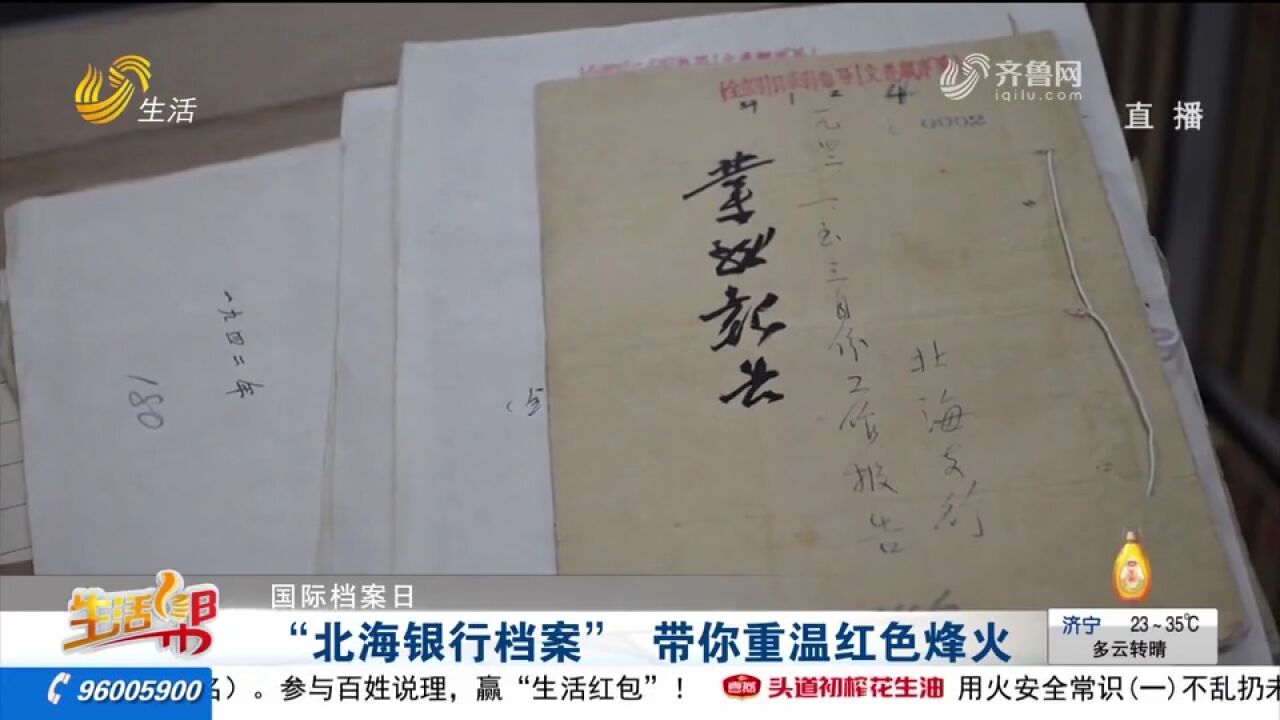 生活
齐鲁网
iqilu.com
直播
0002
北海支行
一九四二、一至三月份工作报告
业务报告
一九四二年
180
生活帮
国际档案日
“北海银行档案” 带你重温红色烽火
济宁 23~35℃
多云转晴
96005900
名）。参与百姓说理，赢“生活红包”！ 喜荔 头道初榨花生油 用火安全常识(一)不乱扔未